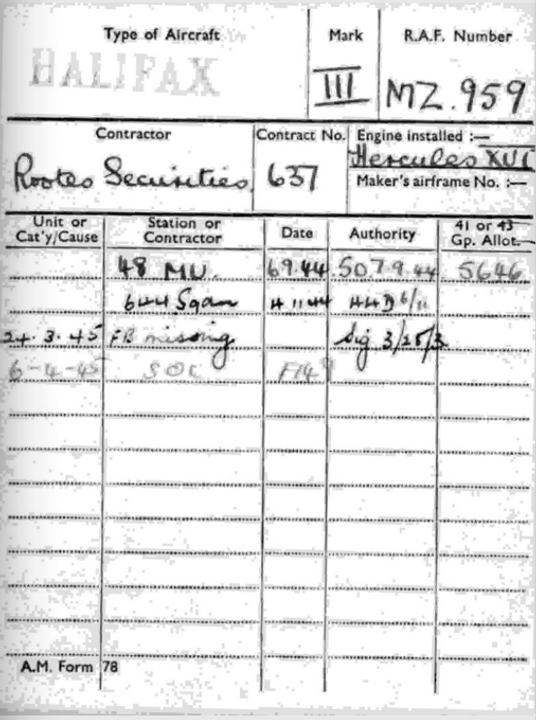 Type of Aircraft Mark R.A.F. Number
HALIFAX III MZ.959
Contractor Contract No. Engine installed :—
Rootes Securities 637 Hercules XVI
Maker's airframe No. :—
Unit or Cat'y/Cause Station or Contractor Date Authority 41 or 43 Gp. Allot.
48 MU. 6.9.44 507 9.44 5646
644 Sqdn 4.11.44 44D 6/11
24.3.45 FB missing Sig 3/25/3
6-4-45 SOC F/149
A.M. Form 78